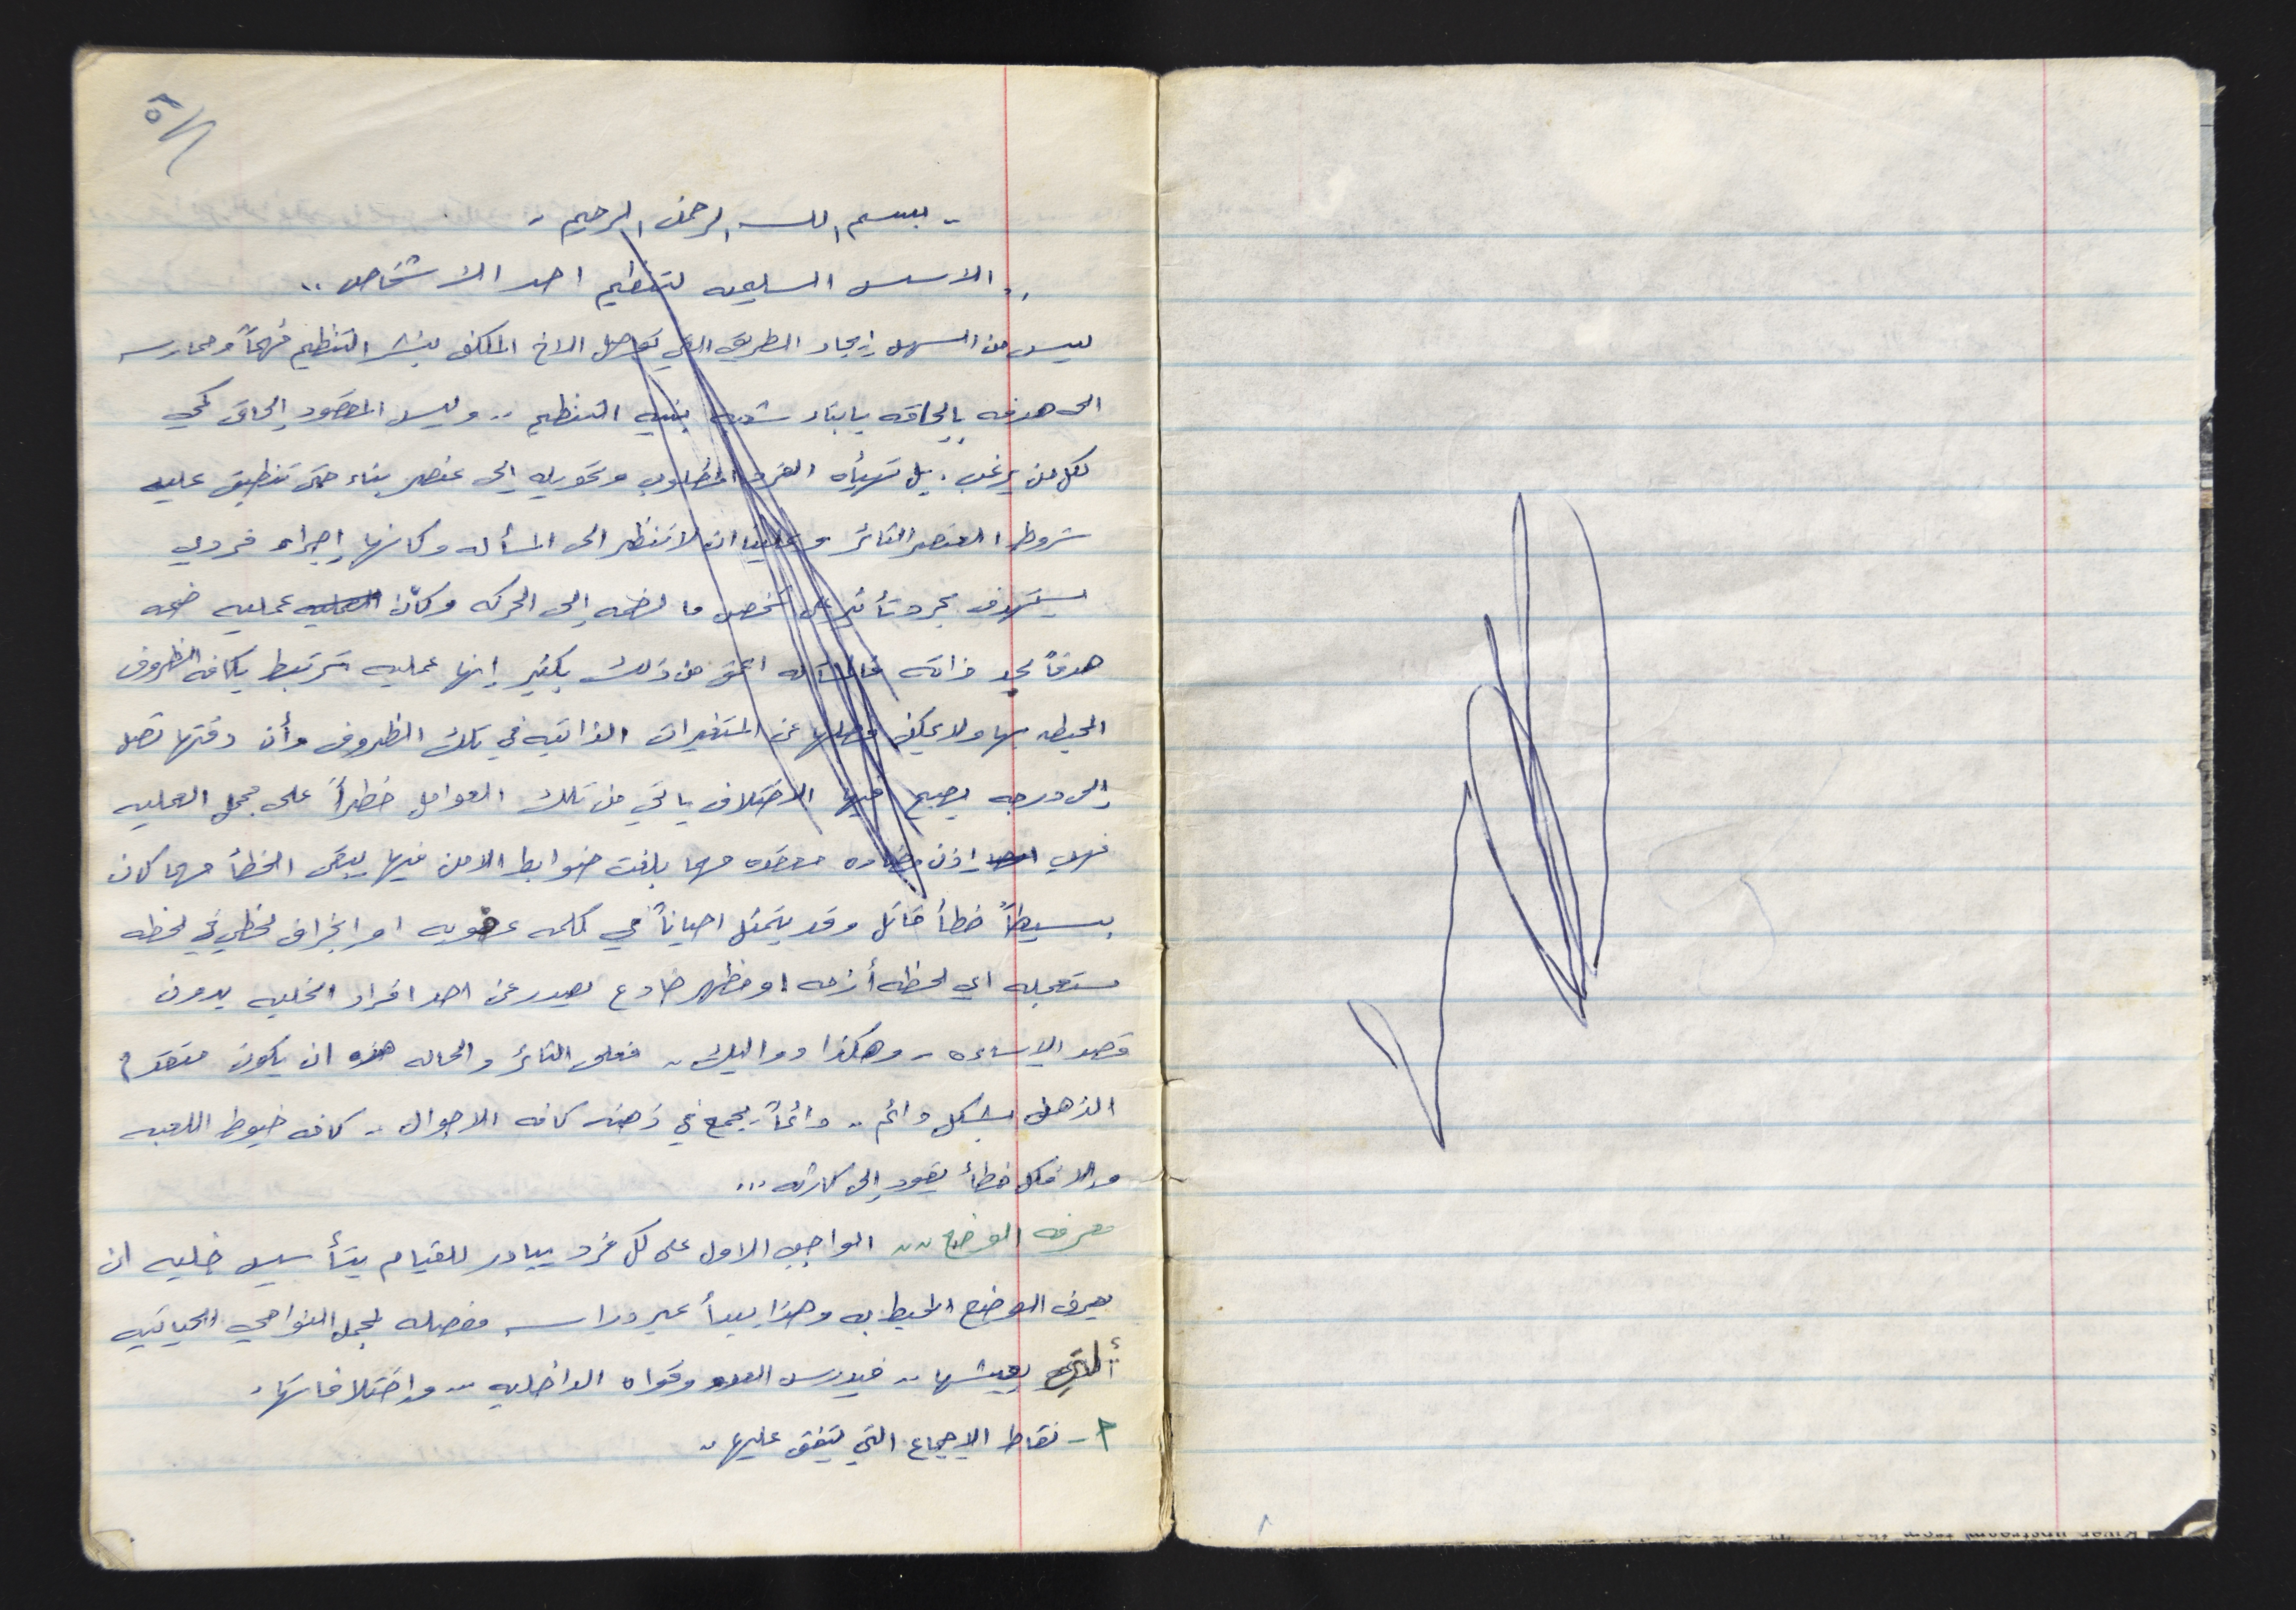 - بسم الله الرحمن الرحيم -
.. الاسس السليمه لتنظيم احد الاشخاص ..
ليس من السهل إيجاد الطريق التي توصل الاخ المكلف بنشر التنظيم فهماً وممارسه
الى هدفه بإلحاقه بابناء شعبه ببنيه التنظيم .. وليس المقصود إلحاق كمي
لكل من يرغب . بل تهيأه الفرد المطلوب وتحويله إلى عنصر بناء حتى تنطبق عليه
شروط العنصر الثائر وعلينا ان لا ننظر الى المسأله وكانها إجراء فردي
يستهدف مجرد تأثير على شخص ما لضمه إلى الحركه وكأن العمليه عمليه ضمه
هدفاً بحد ذاته فالمسأله اعمق من ذلك بكثير إنها عمليه ترتبط بكافه الظروف
المحيطه بها ولا يمكن فصلها عن المتغيرات الذاتيه في تلك الظروف وأن دقتها تصل
إلى درجه يصبح فيها الاختلاف ياتي من تلك العوامل خطراً على مجمل العمليه
فهي إذن معقده مهما بلغت ضوابط الامن فيها يبقى الخطأ مهما كان
بسيطاً خطأ قاتل وقد يتمثل احياناً في كلمه عفويه او انجراف لحظي في لحظه
مستعجله اي لحظه أزمه او مظهر خادع يصدر عن احد افراد الخليه بدون
قصد الإساءه - وهكذا دواليك .. فعلى الثائر والحاله هذه ان يكون متقد
الذهن بشكل دائم .. دائماً يجمع في ذهنه كافه الاحوال .. كافه خيوط اللعبه
والا فكل خطأ يقود إلى كارثه ...
معرفه الوضع .. الواجب الاول على كل فرد يبادر للقيام بتأسيس خليه ان
يعرف الوضع المحيط به وهذا يبدأ عبر دراسه مفصله لمجمل النواحي الحياتيه
التي يعيشها .. فيدرس العدو وقواه الداخليه .. واختلافاتها .
٢- نقاط الإجماع التي تتفق عليها ..